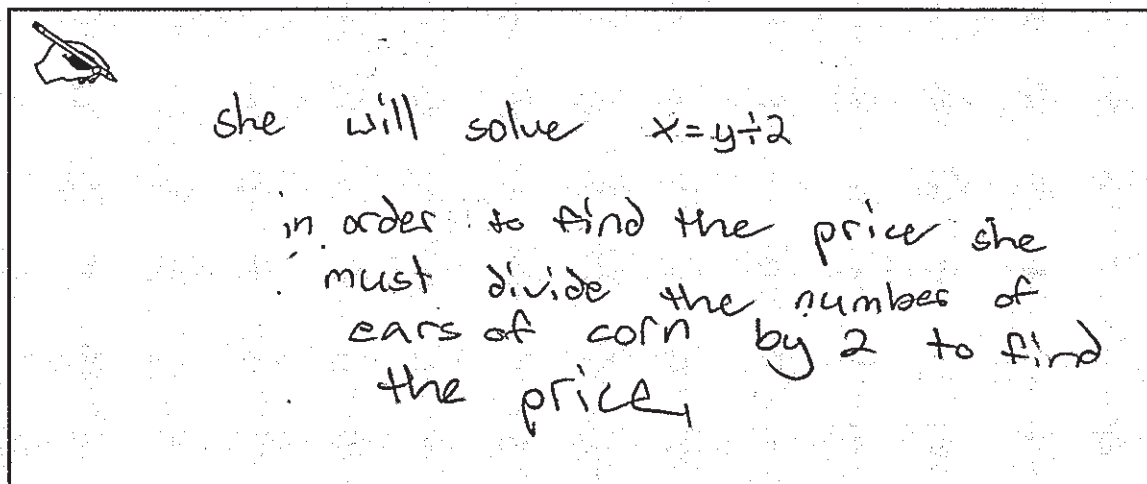 she will solve x=y÷2
in order to find the price she
must divide the number of
ears of corn by 2 to find
the price,